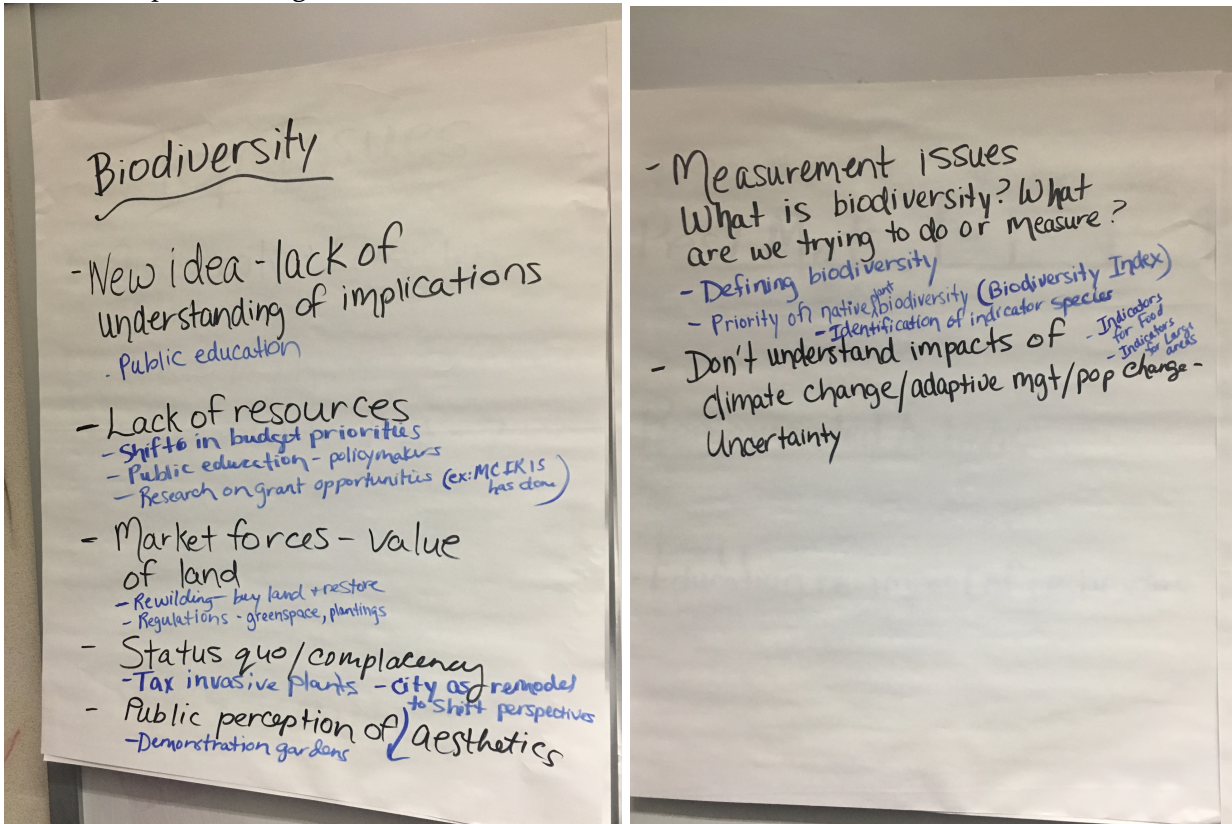 Biodiversity
- New idea - lack of
understanding of implications
- Public education
- Lack of resources
- Shifts in budget priorities
- Public education - policymakers
- Research on grant opportunities (ex: MCIRIS
has done)
- Market forces - value
of land
- Rewilding - buy land + restore
- Regulations - greenspace, plantings
- Status quo/complacency
- Tax invasive plants - city as remodel
to shift perspectives
- Public perception of aesthetics
- Demonstration gardens
- Measurement issues
What is biodiversity? What
are we trying to do or measure?
- Defining biodiversity
- Priority on native plant biodiversity (Biodiversity Index)
- Identification of indicator species
- Indicators
for Food
- Indicators
for Large
areas
- Don't understand impacts of
climate change/adaptive mgt/pop change -
Uncertainty